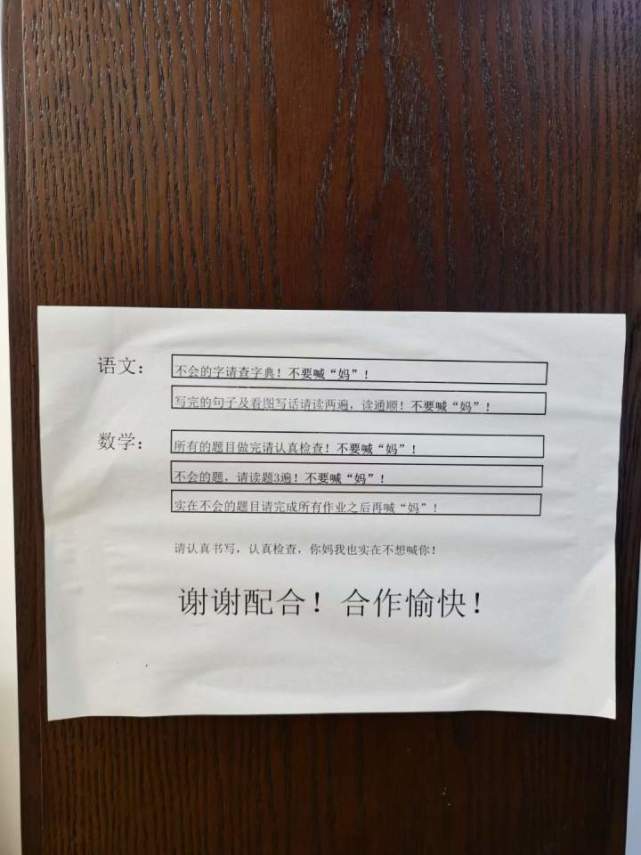 语文： 不会的字请查字典！不要喊“妈”！
写完的句子及看图写话请读两遍，读通顺！不要喊“妈”！
数学： 所有的题目做完请认真检查！不要喊“妈”！
不会的题，请读题3遍！不要喊“妈”！
实在不会的题目请完成所有作业之后再喊“妈”！
请认真书写，认真检查，你妈我也实在不想喊你！
谢谢配合！合作愉快！